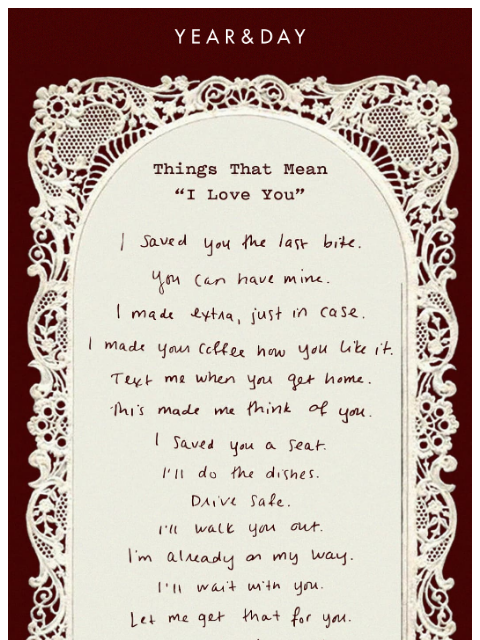 YEAR&DAY
Things That Mean
“I Love You”
I saved you the last bite.
You can have mine.
I made extra, just in case.
I made your coffee how you like it.
Text me when you get home.
This made me think of you.
I saved you a seat.
I'll do the dishes.
Drive safe.
I'll walk you out.
I'm already on my way.
I'll wait with you.
Let me get that for you.